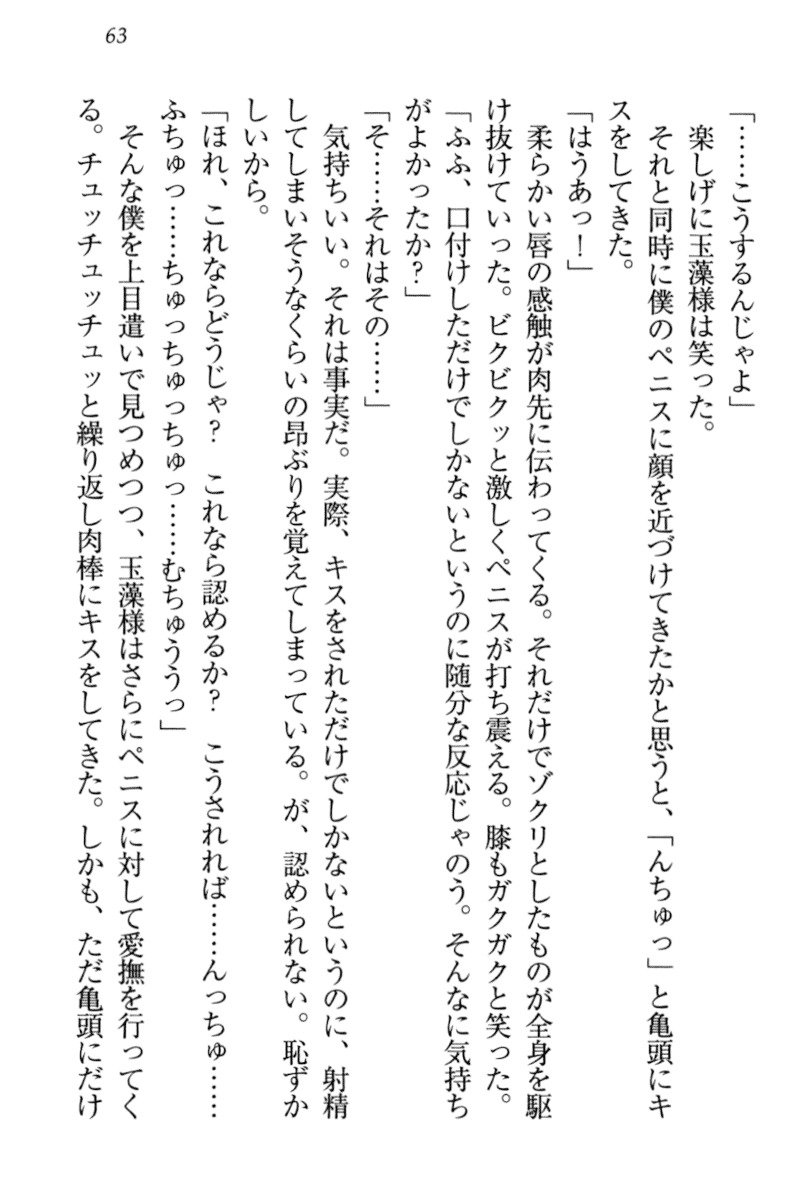 63
「……こうするんじゃよ」
楽しげに玉藻様は笑った。
それと同時に僕のペニスに顔を近づけてきたかと思うと、「んちゅっ」と亀頭にキ
スをしてきた。
「はうあっ！」
柔らかい唇の感触が肉先に伝わってくる。それだけでゾクリとしたものが全身を駆
け抜けていった。ビクビクッと激しくペニスが打ち震える。膝もガクガクと笑った。
「ふふ、口付けしただけでしかないというのに随分な反応じゃのう。そんなに気持ち
がよかったか？」
「そ……それはその……」
気持ちいい。それは事実だ。実際、キスをされただけでしかないというのに、射精
してしまいそうなくらいの昂ぶりを覚えてしまっている。が、認められない。恥ずか
しいから。
「ほれ、これならどうじゃ？　これなら認めるか？　こうされれば……んっちゅ……
ふちゅっ……ちゅっちゅっちゅっ……むちゅううっ」
そんな僕を上目遣いで見つめつつ、玉藻様はさらにペニスに対して愛撫を行ってく
る。チュッチュッチュッと繰り返し肉棒にキスをしてきた。しかも、ただ亀頭にだけ